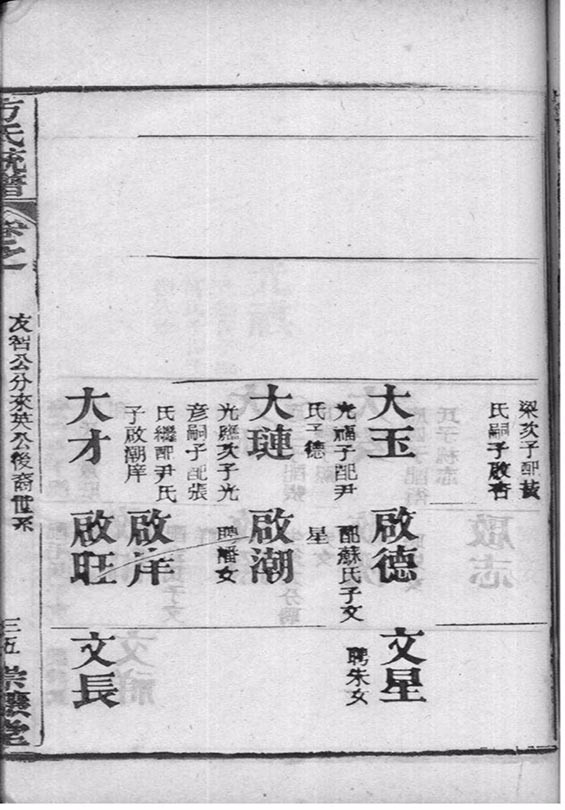 梁次子配黃
氏嗣子啟杏
大玉
光福子配尹
氏子德
啟德
配蘇氏子文
星
文星
聘朱女
大璉
光應次子光
彦嗣子配張
氏繼配尹氏
子啟潮庠
啟潮
聘潘女
啟庠
大才
啟旺
文長
方氏統譜
卷之
友智公分來英公後裔世系
三五